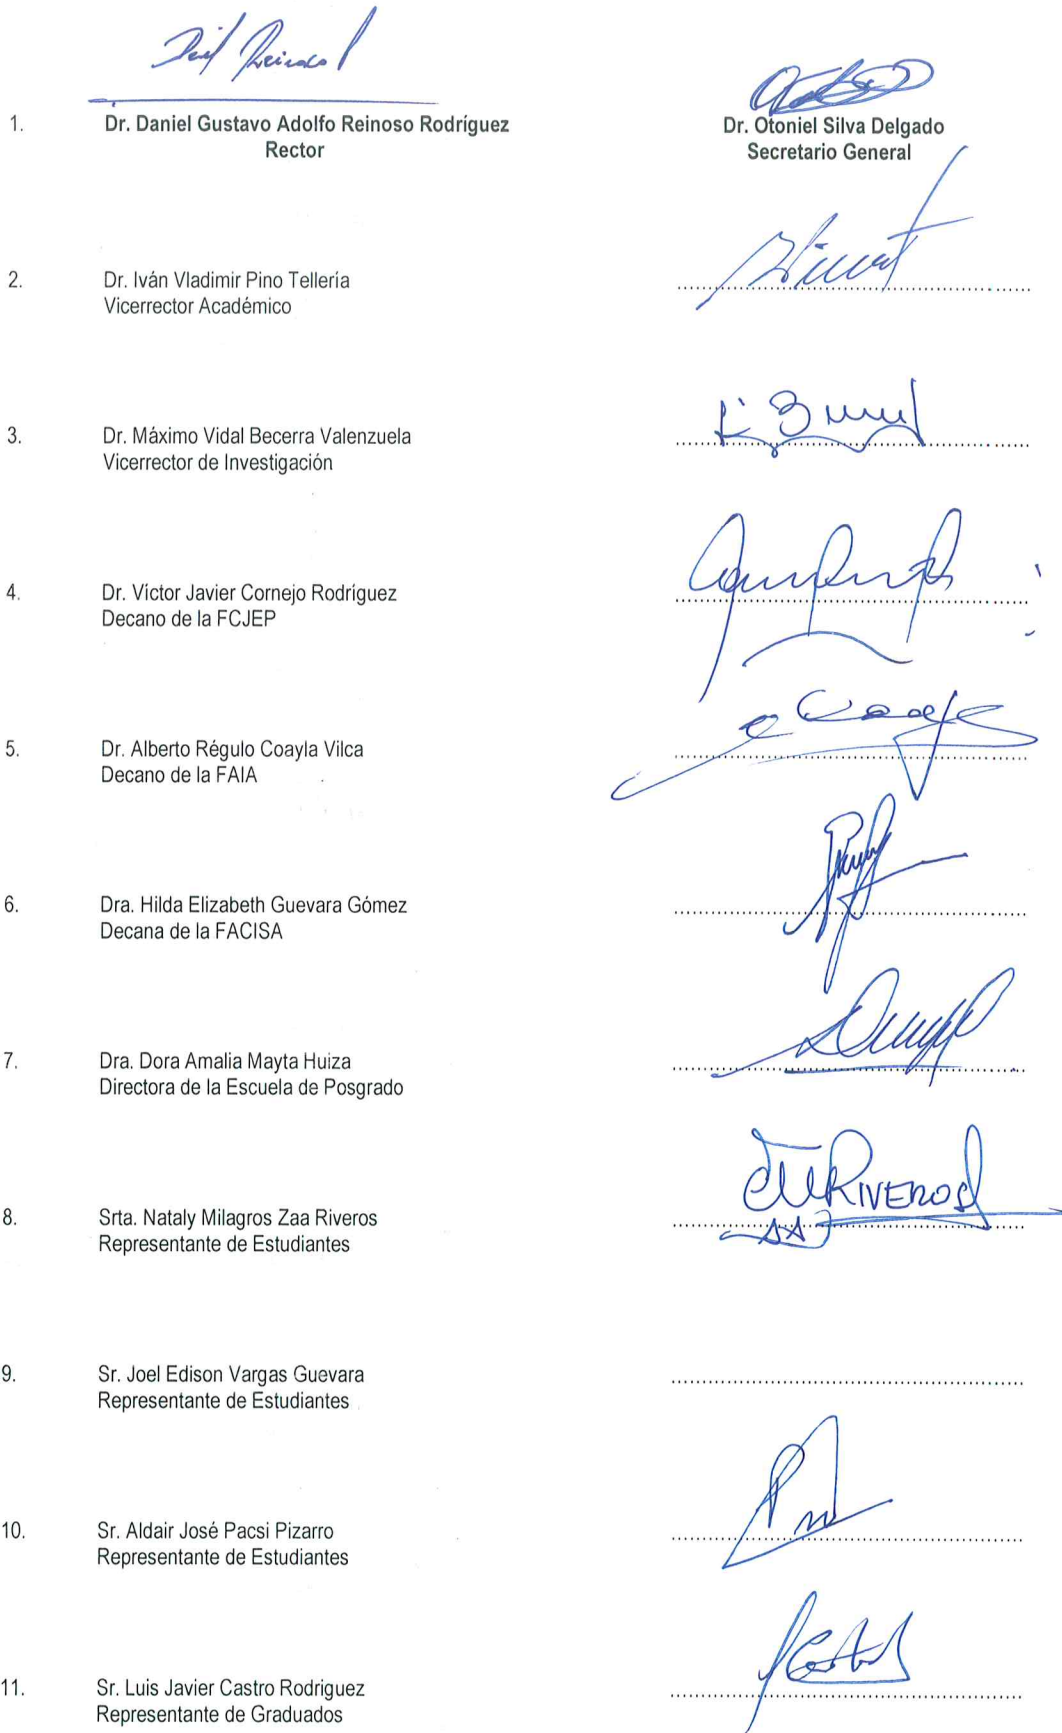 1. Dr. Daniel Gustavo Adolfo Reinoso Rodríguez
Rector
Dr. Otoniel Silva Delgado
Secretario General
2. Dr. Iván Vladimir Pino Tellería
Vicerrector Académico
3. Dr. Máximo Vidal Becerra Valenzuela
Vicerrector de Investigación
4. Dr. Víctor Javier Cornejo Rodríguez
Decano de la FCJEP
5. Dr. Alberto Régulo Coayla Vilca
Decano de la FAIA
6. Dra. Hilda Elizabeth Guevara Gómez
Decana de la FACISA
7. Dra. Dora Amalia Mayta Huiza
Directora de la Escuela de Posgrado
RIVEROS
8. Srta. Nataly Milagros Zaa Riveros
Representante de Estudiantes
9. Sr. Joel Edison Vargas Guevara
Representante de Estudiantes
10. Sr. Aldair José Pacsi Pizarro
Representante de Estudiantes
11. Sr. Luis Javier Castro Rodriguez
Representante de Graduados